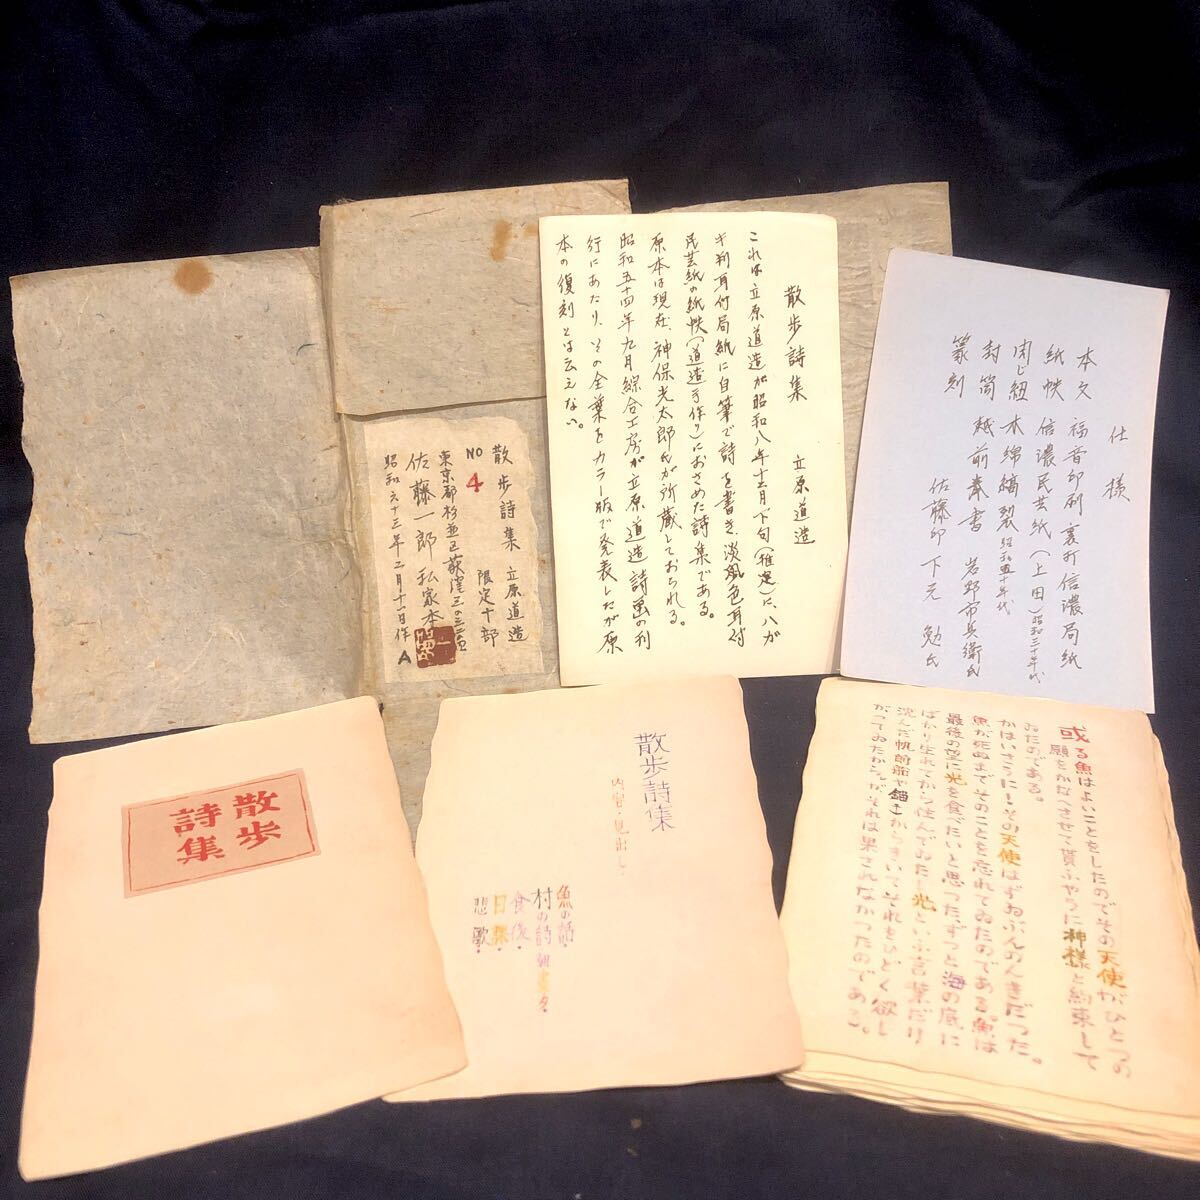 散歩詩集 立原道造
NO 4 限定十部
東京都杉並区荻窪三の三
佐藤一郎 私家本
昭和六十三年二月十一日作
A
散歩詩集 立原道造
これは立原道造が昭和八年十二月下旬(推定)に、ハガ
キ判耳付局紙に自筆で詩を書き、淡風色耳付
民芸紙の紙帙(道造手作り)におさめた詩集である。
原本は現在、神保光太郎氏が所蔵しておられる。
昭和五十四年九月綜合工房が立原道造詩画の刊
行にあたり、その全葉をカラー版で発表したが原
本の復刻とは云えない。
仕様
本文 福音印刷 裏打信濃局紙
紙帙 信濃民芸紙(上田)昭和三十年代
閉じ紐 木綿縞裂 昭和五十年代
封筒 越前奉書 岩野市兵衛氏
篆刻 佐藤印 下元 勉氏
散歩
詩集
散歩詩集
内容・見出し
魚の話・
村の詩 朝・昼・夕・
食後・
日課・
悲歌・
或る魚はよいことをしたのでその天使がひとつの
願をかなへさせて貰ふやうに神様と約束して
ゐたのである。
かはいさうに!その天使はずゐぶんのんきだつた。
魚が死ぬまでそのことを忘れてゐたのである。魚は
最後の望に光を食べたいと思つた、ずつと海の底に
ばかり生れてから住んでゐたし光といふ言葉だけ
沈んだ帆前船や錨からきいてそれをひどく欲し
がつてゐたから。が、それは果されなかつたのである。